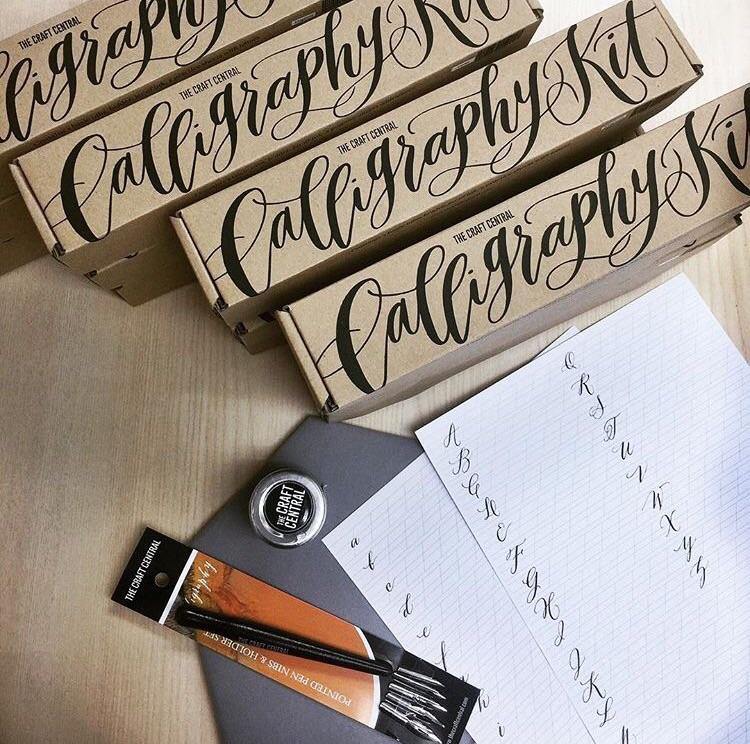 THE CRAFT CENTRAL
Calligraphy Kit
THE CRAFT CENTRAL
Calligraphy Kit
THE CRAFT CENTRAL
Calligraphy Kit
THE CRAFT CENTRAL
Calligraphy Kit
THE CRAFT
CENTRAL
THE CRAFT CENTRAL
THE CRAFT CENTRAL
POINTED PEN NIBS & HOLDER SET
a
b
c
d
e
h
i
A
B
C
D
E
F
G
H
I
J
K
L
M
Q
R
S
T
U
V
W
X
Y
Z